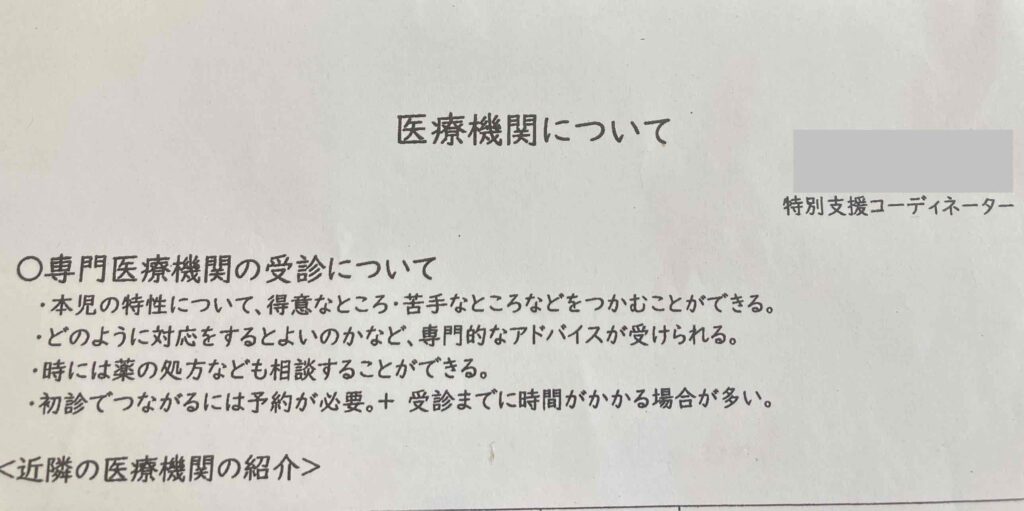 医療機関について
特別支援コーディネーター
〇専門医療機関の受診について
・本児の特性について、得意なところ・苦手なところなどをつかむことができる。
・どのように対応をするとよいのかなど、専門的なアドバイスが受けられる。
・時には薬の処方なども相談することができる。
・初診でつながるには予約が必要。＋ 受診までに時間がかかる場合が多い。
<近隣の医療機関の紹介>